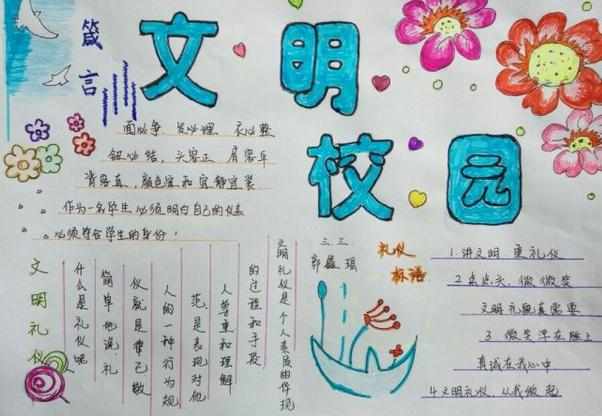 箴言
文明
校园
面必净 发必理 衣必整
纽必结,头容正 肩容平
背容直,颜色宜和宜静宜装
作为一名学生必须明白自己的仪表
必须符合学生的身份。
文明礼仪
什么是礼仪呢
简单地说,礼
仪就是律己敬
人的一种行为规
范,是表现对他
人尊重和理解
的过程和手段
文明礼仪是个人素质由体现
三、三
礼仪
标语
1.讲文明 重礼仪
2 点点头,微微笑
文明礼貌真需要
3 微笑浮在脸上
真诚在我心中
4.文明礼仪,从我做起